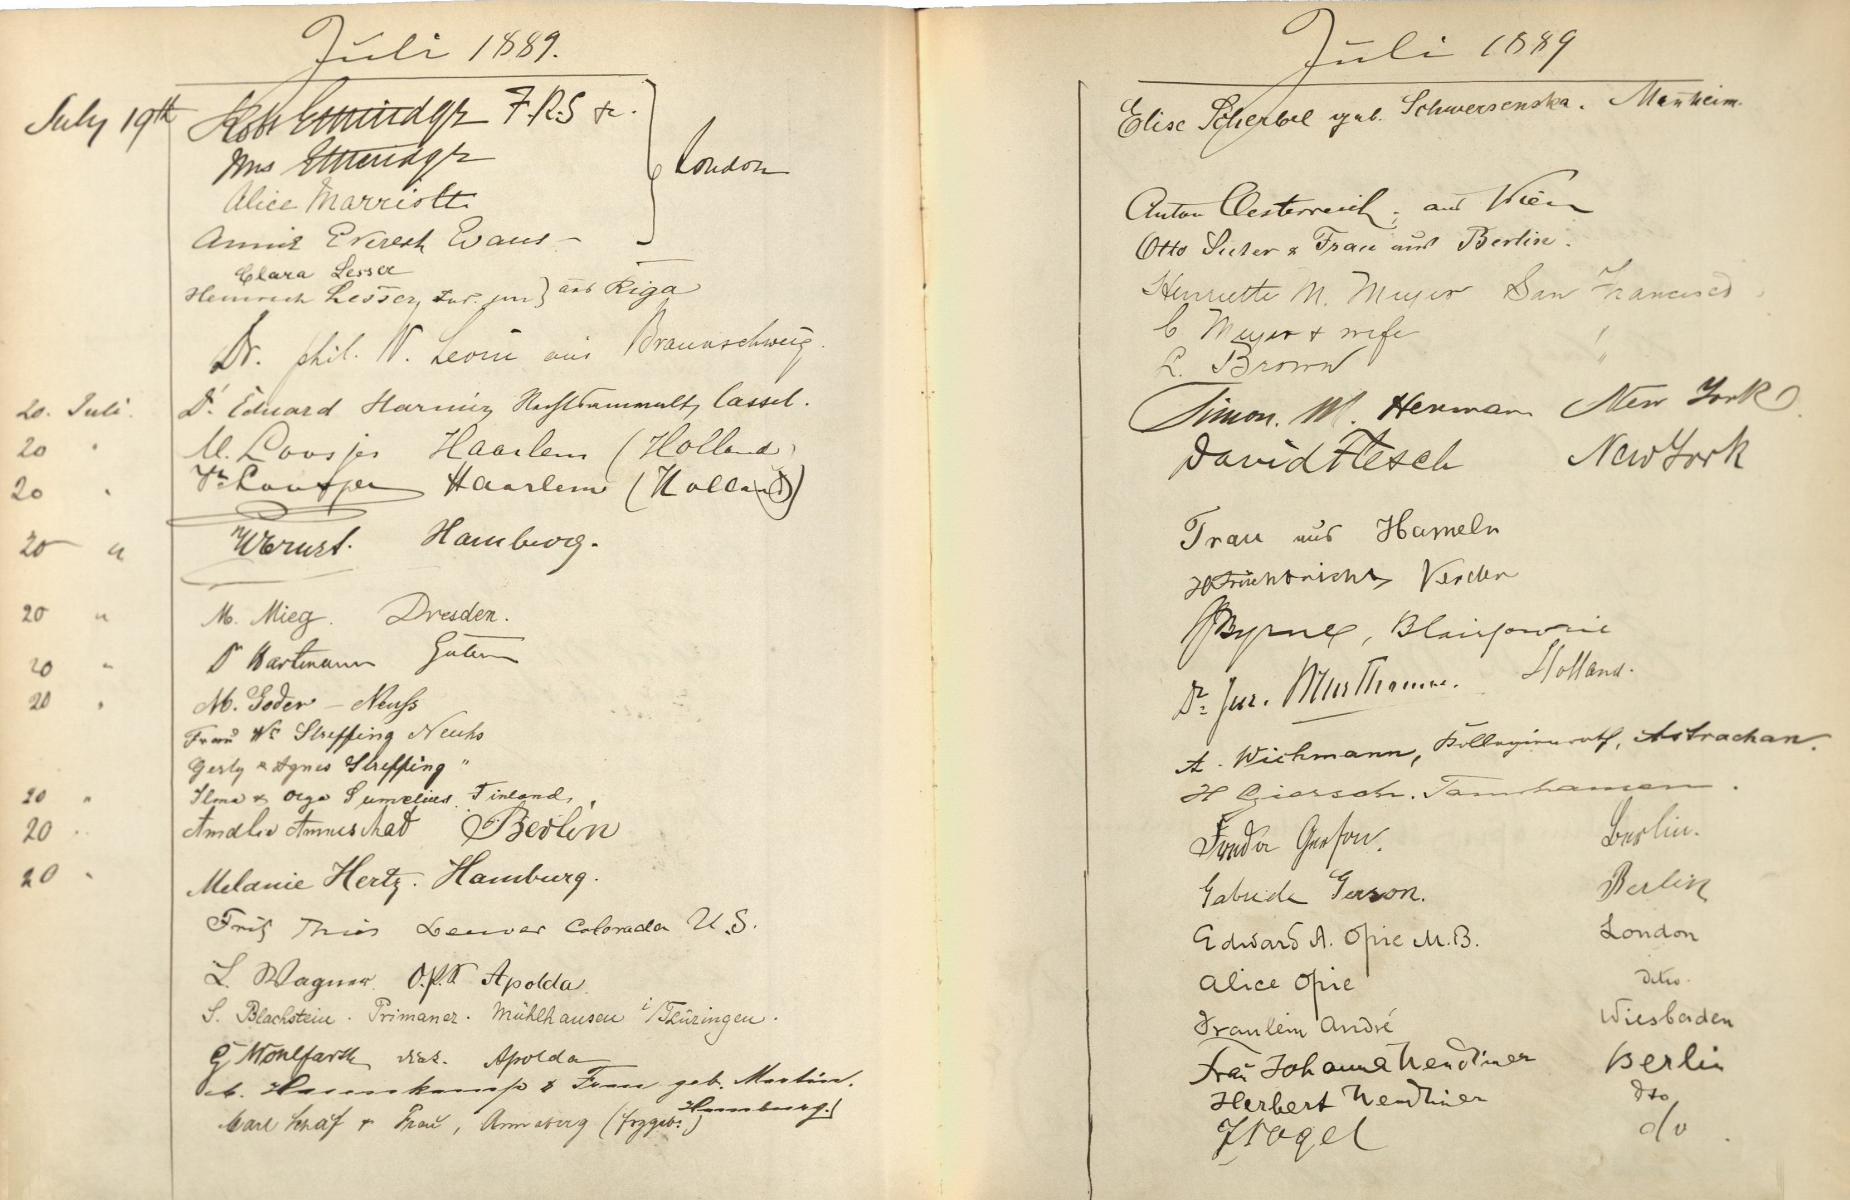 Juli 1889.
July 19th Robt Etheridge F.R.S &c.
Mrs Etheridge
London
Alice Marriott
Annie Everest Evans -
Clara Lesser
Heinrich Lesser, jun } aus Riga
Dr. phil. V. Levin aus Braunschweig.
20. Juli. Dr. Eduard Harnier Rechtsanwalt, Cassel.
20 " M. Loosjes Haarlem (Holland)
20 " Loosjes Haarlem (Holland)
20 " Ernst. Hamburg.
20 " M. Mieg. Dresden.
20 " Dr Hartmann
20 " M. Goder - Neuss
Frau We Streffing Neuss
Gerty & Agnes Streffing "
20 " Ilma & Olga Sumelius. Finland.
20 " Berlin
20 " Melanie Hertz. Hamburg.
Fritz Thies Denver Colorado U.S.
L. Wagner Apolda.
S. Blachstein. Primaner. Mühlhausen i/Thüringen.
G Wohlfarth Apolda
Hasenkamp & Frau geb. Martin.
Hamburg.
Carl Schäf & Frau, Annaberg (Erzgeb.)
Juli 1889
Elise Scherbel geb. Schwersenska. Manheim.
Anton Oesterreich, aus Wien
Otto Suter & Frau aus Berlin.
Henriette M. Meyer San Francisco
C Meyer & wife "
L. Brown "
Simon. M. Herman New York
David Flesch New York
Frau aus Hameln
Verden
Byrne, Blairgowrie
Dr. Jur. Holland.
A. Wichmann, Kollegienrath, Astrachan.
H Giersch.
Gerson. Berlin.
Gabriele Gerson. Berlin
Edward A. Opie M.B. London
Alice Opie Ditto.
Fraulein André Wiesbaden
Frau Johanna Wendriner Berlin
Herbert Wendriner dto
Vogel d/o